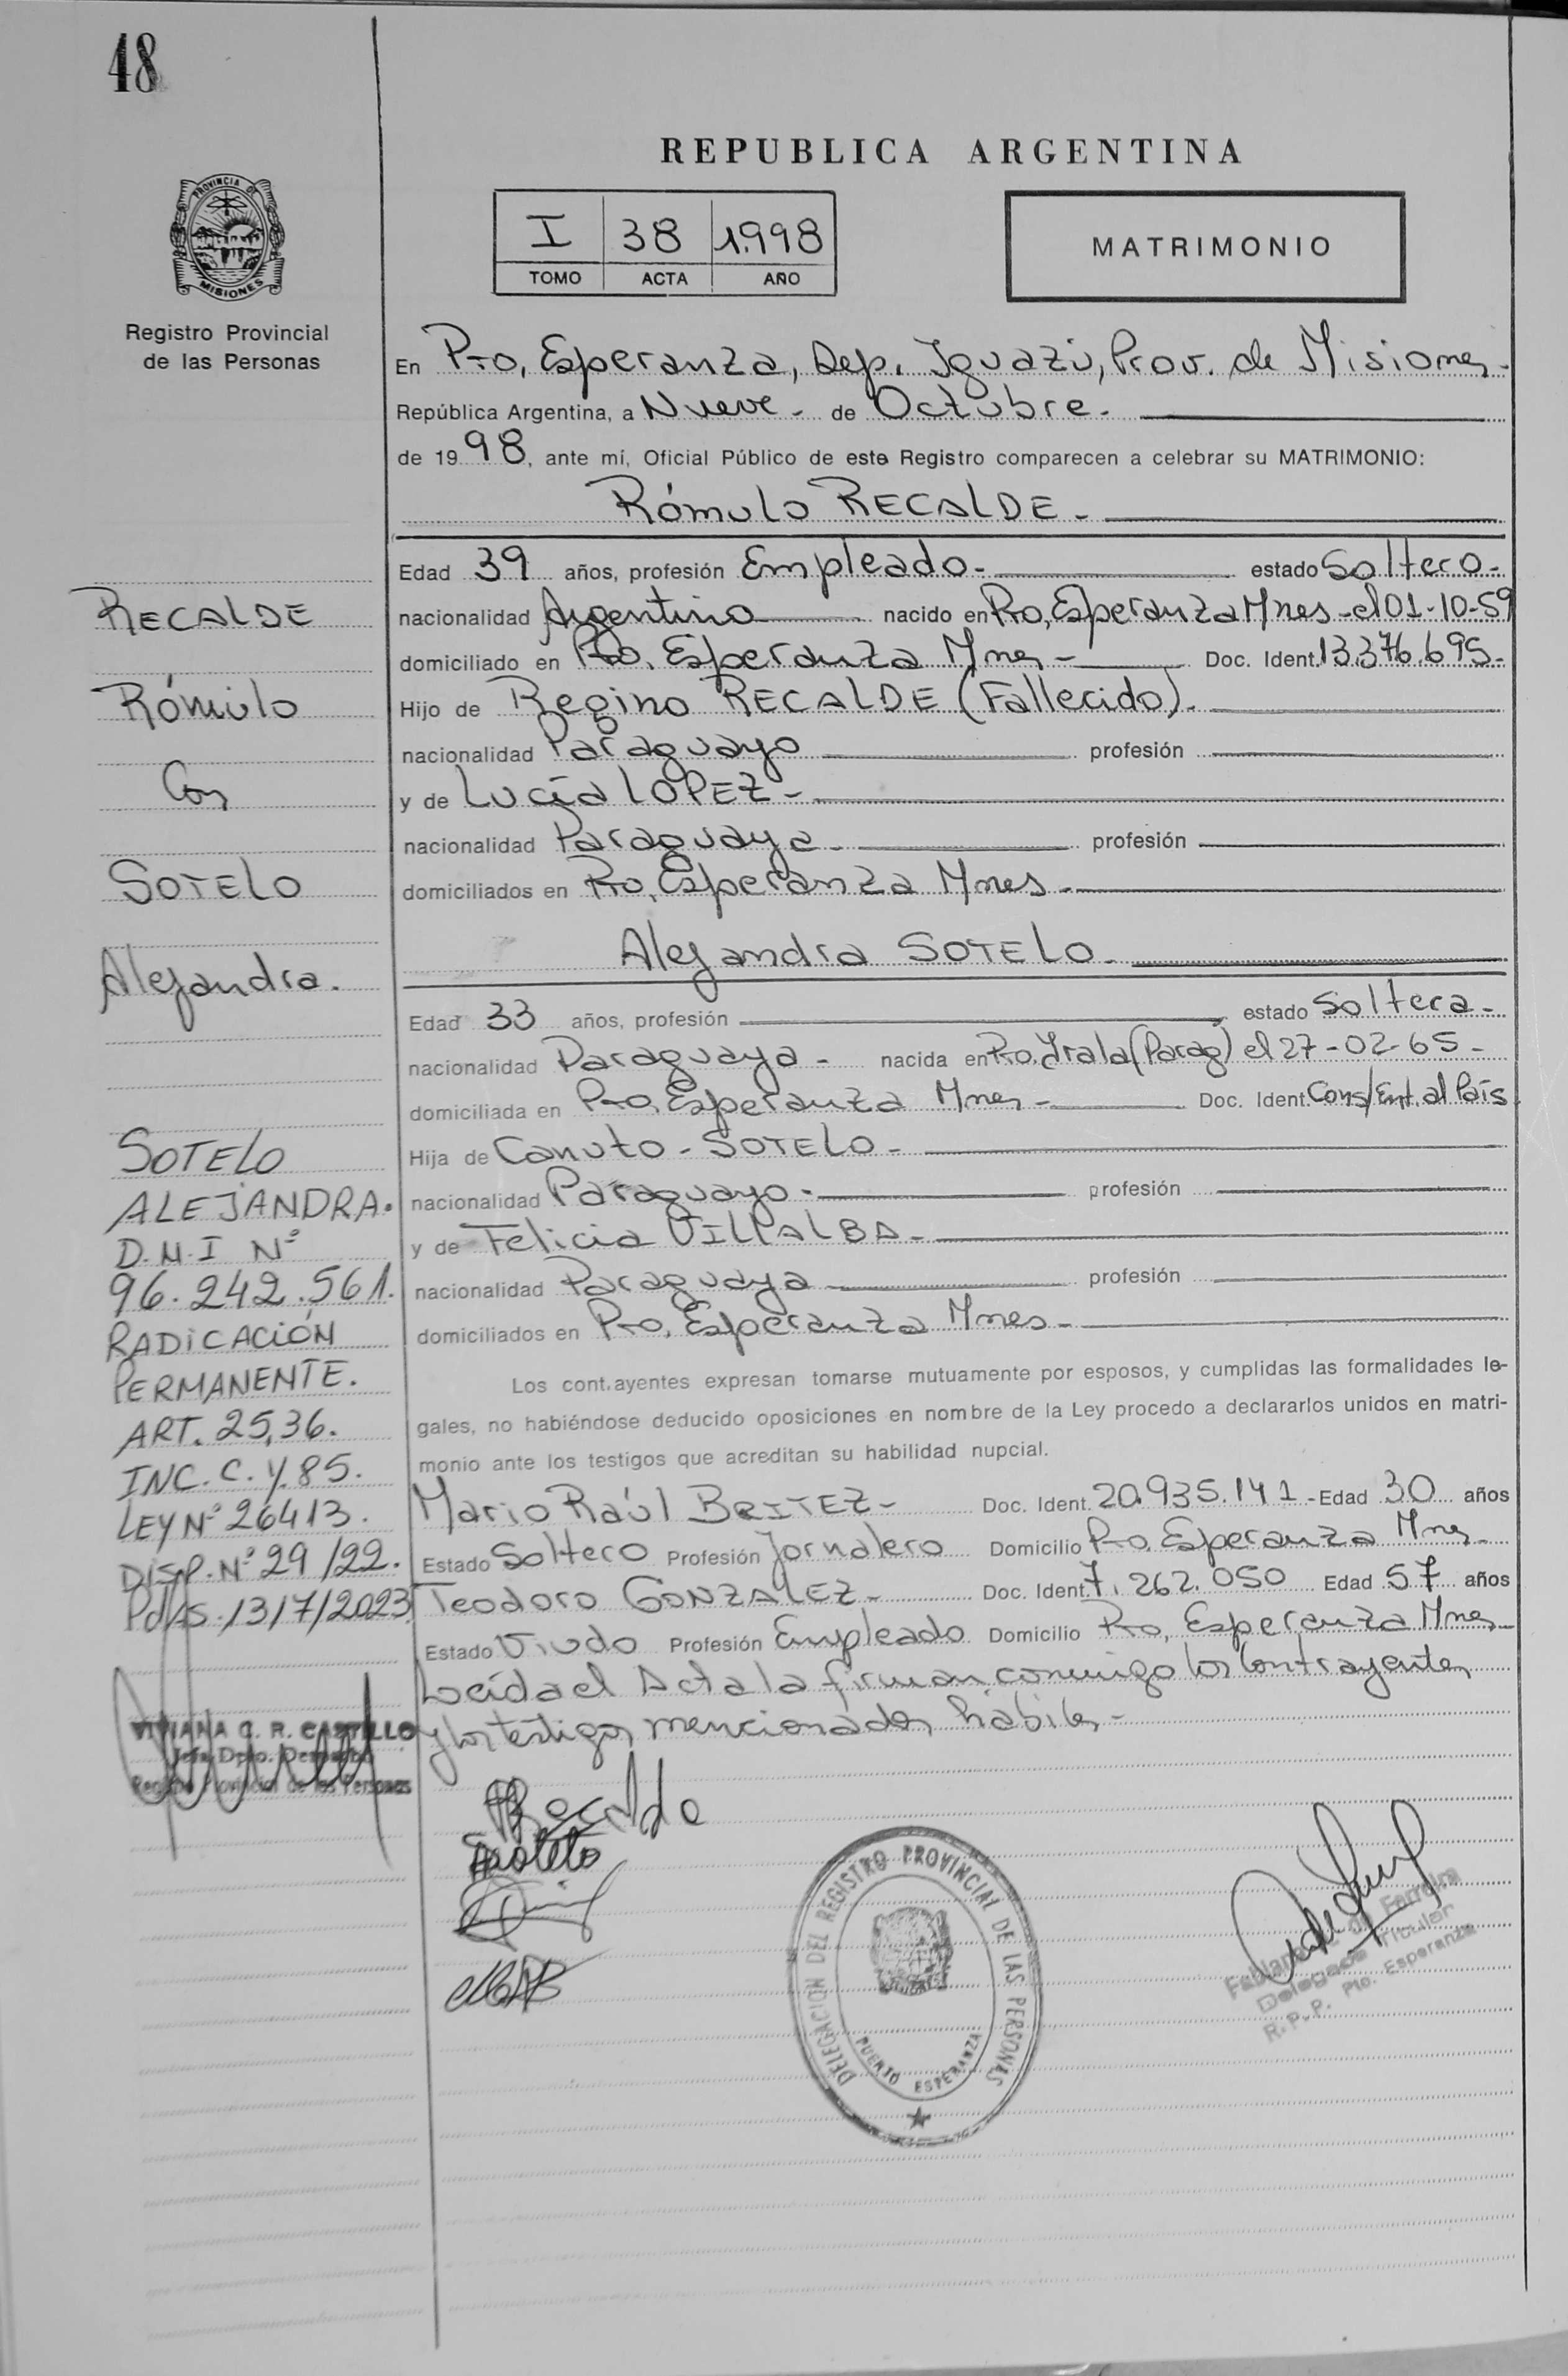 48
REPUBLICA ARGENTINA
PROVINCIA DE
MISIONES
Registro Provincial
de las Personas
I 38 1.998
TOMO ACTA AÑO
MATRIMONIO
En Pto, Esperanza, Dep. Iguazú, Prov. de Misiones-
República Argentina, a Nueve- de Octubre-
de 1998, ante mí, Oficial Público de este Registro comparecen a celebrar su MATRIMONIO:
Rómulo RECALDE-
Edad 39 años, profesión Empleado- estado Soltero-
nacionalidad Argentino nacido en Pto, Esperanza Mnes-el 01-10-59
domiciliado en Pto. Esperanza Mnes- Doc. Ident. 13.376.695-
Hijo de Regino RECALDE (Fallecido)-
nacionalidad Paraguayo profesión
y de Lucía LOPEZ-
nacionalidad Paraguaya- profesión
domiciliados en Pto, Esperanza Mnes-
Alejandra SOTELO-
Edad 33 años, profesión estado Soltera-
nacionalidad Paraguaya- nacida en Pto. Irala (Parag) el 27-02-65-
domiciliada en Pto, Esperanza Mnes- Doc. Ident. Cons/Ent. al País.
Hija de Canuto- SOTELO-
nacionalidad Paraguayo- profesión
y de Felicia VILLALBA-
nacionalidad Paraguaya profesión
domiciliados en Pto, Esperanza Mnes-
Los contrayentes expresan tomarse mutuamente por esposos, y cumplidas las formalidades le-
gales, no habiéndose deducido oposiciones en nombre de la Ley procedo a declararlos unidos en matri-
monio ante los testigos que acreditan su habilidad nupcial.
Mario Raúl BRITEZ- Doc. Ident. 20.935.141- Edad 30 años
Estado Soltero Profesión Jornalero Domicilio Pto, Esperanza Mnes-
Teodoro GONZALEZ- Doc. Ident. 7.262.050 Edad 57 años
Estado Viudo Profesión Empleado Domicilio Pto, Esperanza Mnes-
Leída el Acta la firman conmigo los Contrayentes
y los testigos mencionados hábiles-
RECALDE
Rómulo
Con
SOTELO
Alejandra.
SOTELO
ALEJANDRA.
D.N.I Nº
96.242.561.
RADICACIÓN
PERMANENTE.
ART. 25,36.
INC. C. Y. 85.
LEY Nº 26413.
DISP. Nº 29/22.
Pdas. 13/7/2023.
VIVIANA C. R. CASTILLO
Jefa Dpto. Despacho
Registro Provincial de las Personas
Recalde
DELEGACION DEL REGISTRO PROVINCIAL DE LAS PERSONAS
PUERTO ESPERANZA
de Ferreira
Delegada Titular
R.P.P. Pto. Esperanza